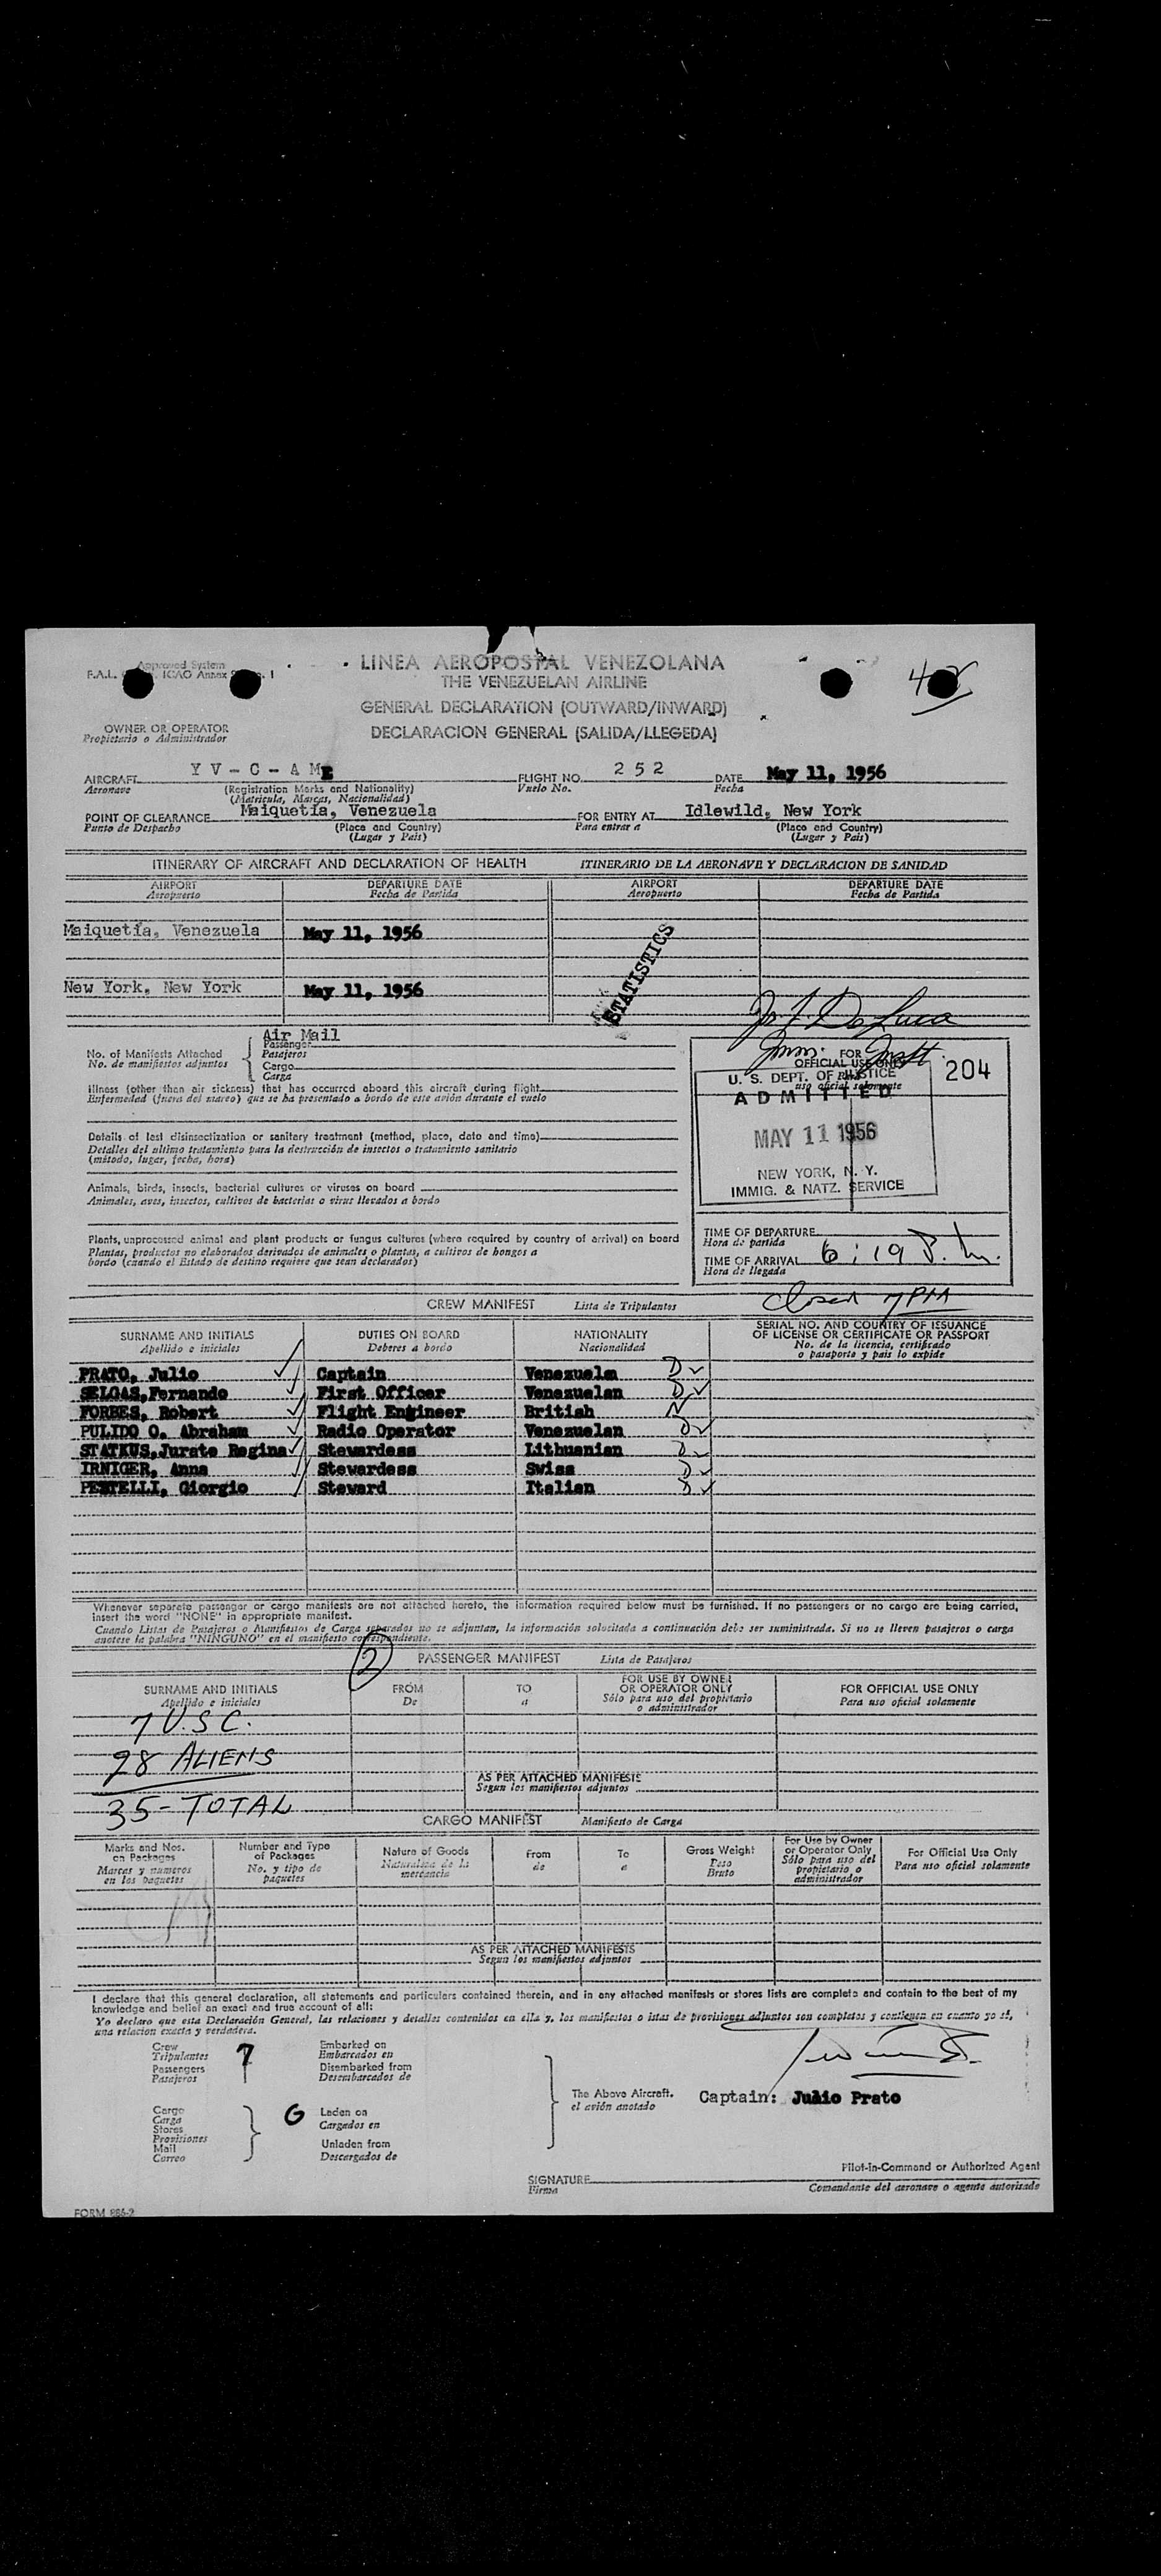 Approved System
F.A.L. ICAO Annex 9 . 1
LINEA AEROPOSTAL VENEZOLANA
THE VENEZUELAN AIRLINE
GENERAL DECLARATION (OUTWARD/INWARD)
DECLARACION GENERAL (SALIDA/LLEGEDA)
OWNER OR OPERATOR
Propietario o Administrador
AIRCRAFT Y V - C - A M E FLIGHT NO. 2 5 2 DATE May 11, 1956
Aeronave (Registration Marks and Nationality) Vuelo No. Fecha
(Matricula, Marcas, Nacionalidad)
POINT OF CLEARANCE Maiquetía, Venezuela FOR ENTRY AT Idlewild, New York
Punto de Despacho (Place and Country) Para entrar a (Place and Country)
(Lugar y Pais) (Lugar y Pais)
ITINERARY OF AIRCRAFT AND DECLARATION OF HEALTH ITINERARIO DE LA AERONAVE Y DECLARACION DE SANIDAD
AIRPORT DEPARTURE DATE AIRPORT DEPARTURE DATE
Aeropuerto Fecha de Partida Aeropuerto Fecha de Partida
Maiquetía, Venezuela May 11, 1956
New York, New York May 11, 1956
STATISTICS
De Luca
Air Mail
No. of Manifests Attached Passenger
No. de manifiestos adjuntos Pasajeros
Cargo
Carga
Illness (other than air sickness) that has occurred aboard this aircraft during flight
Enfermedad (fuera del mareo) que se ha presentado a bordo de este avión durante el vuelo
Details of last disinsectization or sanitary treatment (method, place, date and time)
Detalles del ultimo tratamiento para la destrucción de insectos o tratamiento sanitario
(método, lugar, fecha, hora)
Animals, birds, insects, bacterial cultures or viruses on board
Animales, aves, insectos, cultivos de bacterias o virus llevados a bordo
Plants, unprocessed animal and plant products or fungus cultures (where required by country of arrival) on board
Plantas, productos no elaborados derivados de animales o plantas, a cultivos de hongos a
bordo (cuando el Estado de destino requiere que sean declarados)
FOR
OFFICIAL USE ONLY
Para uso oficial solamente
U. S. DEPT. OF JUSTICE
ADMITTED
MAY 11 1956
NEW YORK, N. Y.
IMMIG. & NATZ. SERVICE
204
TIME OF DEPARTURE
Hora de partida
TIME OF ARRIVAL 6:19 P.M.
Hora de llegada
Closed 7 PM
CREW MANIFEST Lista de Tripulantes
SURNAME AND INITIALS DUTIES ON BOARD NATIONALITY SERIAL NO. AND COUNTRY OF ISSUANCE
OF LICENSE OR CERTIFICATE OR PASSPORT
Apellido e iniciales Deberes a bordo Nacionalidad No. de la licencia, certificado
o pasaporte y pais lo expide
PRATO, Julio Captain Venezuelan D
SELGAS, Fernando First Officer Venezuelan D
FORBES, Robert Flight Engineer British N
PULIDO O. Abraham Radio Operator Venezuelan D
STATKUS, Jurate Regina Stewardess Lithuanian D
IRNIGER, Anna Stewardess Swiss D
PESTELLI, Giorgio Steward Italian D
Whenever separate passenger or cargo manifests are not attached hereto, the information required below must be furnished. If no passengers or no cargo are being carried,
insert the word "NONE" in appropriate manifest.
Cuando Listas de Pasajeros o Manifiestos de Carga separados no se adjuntan, la información solocitada a continuación debe ser suministrada. Si no se lleven pasajeros o carga
anotese la palabra "NINGUNO" en el manifiesto correspondiente.
2
PASSENGER MANIFEST Lista de Pasajeros
SURNAME AND INITIALS FROM TO FOR USE BY OWNER
OR OPERATOR ONLY FOR OFFICIAL USE ONLY
Apellido e iniciales De a Sólo para uso del propietario
o administrador Para uso oficial solamente
7 U.S.C.
28 ALIENS
35 - TOTAL
AS PER ATTACHED MANIFESTS
Segun los manifiestos adjuntos
CARGO MANIFEST Manifiesto de Carga
Marks and Nos.
on Packages
Marcas y numeros
en los paquetes
Number and Type
of Packages
No. y tipo de
paquetes
Nature of Goods
Naturaleza de la
mercancia
From
de
To
a
Gross Weight
Peso
Bruto
For Use by Owner
or Operator Only
Sólo para uso del
propietario o
administrador
For Official Use Only
Para uso oficial solamente
AS PER ATTACHED MANIFESTS
Segun los manifiestos adjuntos
I declare that this general declaration, all statements and particulars contained therein, and in any attached manifests or stores lists are complete and contain to the best of my
knowledge and belief an exact and true account of all:
Yo declaro que esta Declaración General, las relaciones y detalles contenidos en ella y, los manifiestos o istas de provisiones adjuntos son completos y contienen en cuanto yo sé,
una relacion exacta y verdadera.
Crew
Tripulantes
Passengers
Pasajeros
7
Embarked on
Embarcados en
Disembarked from
Desembarcados de
Cargo
Carga
Stores
Provisiones
Mail
Correo
G
Laden on
Cargados en
Unladen from
Descargados de
The Above Aircraft.
el avión anotado
Captain: Julio Prato
Pilot-in-Command or Authorized Agent
SIGNATURE
Firma
Comandante del aeronave o agente autorizado
FORM 886-2